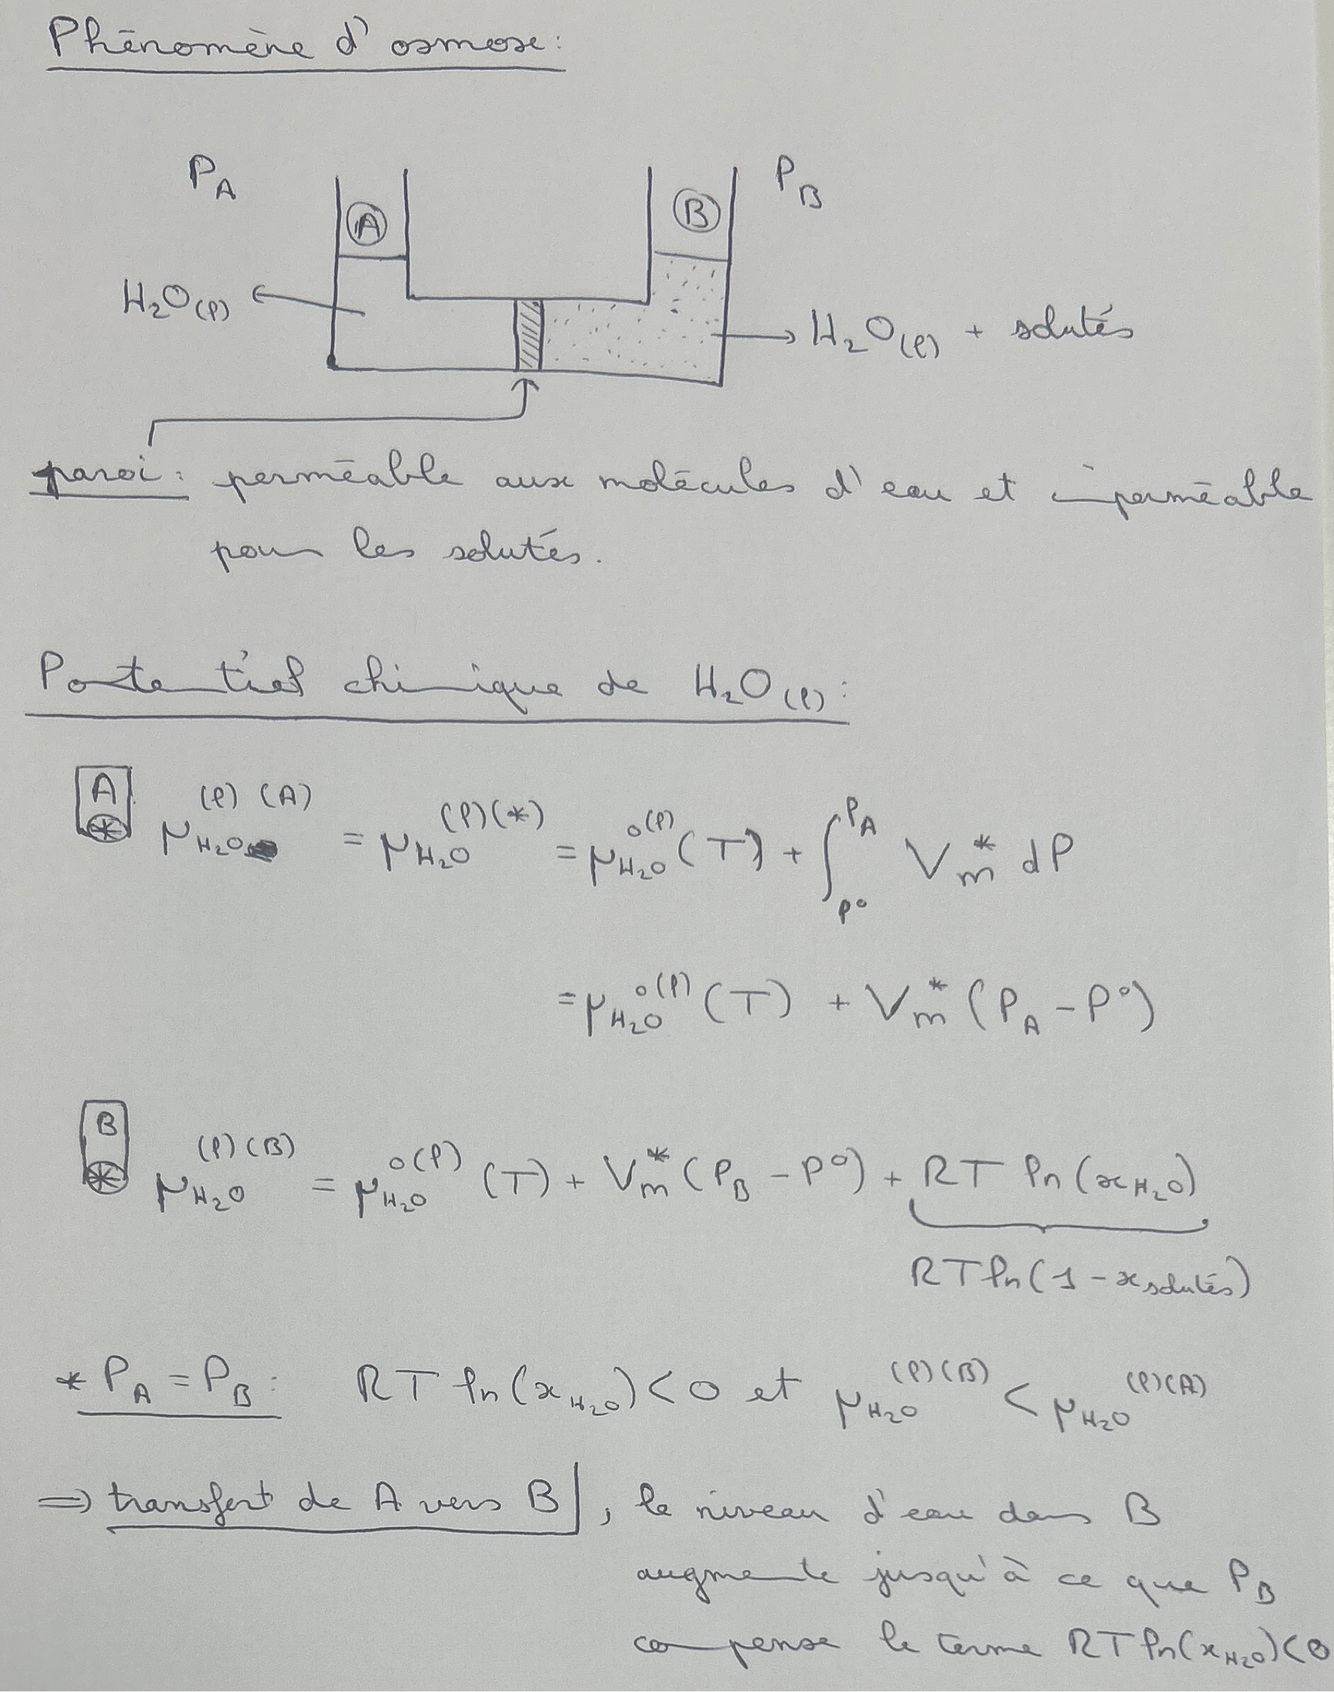 Phénomène d'osmose :
P_A
P_B
A
B
H₂O(l)
H₂O(l) + solutés
paroi : perméable aux molécules d'eau et imperméable
pour les solutés.
Potentiel chimique de H₂O(l) :
A * μ_H₂O^(l)(A) = μ_H₂O^(l)(*) = μ_H₂O^o(l) (T) + ∫_P°^P_A V_m^* dP
= μ_H₂O^o(l) (T) + V_m^* (P_A - P°)
B * μ_H₂O^(l)(B) = μ_H₂O^o(l) (T) + V_m^* (P_B - P°) + RT ln(x_H₂O)
RT ln(1 - x_solutés)
* P_A = P_B : RT ln(x_H₂O) < 0 et μ_H₂O^(l)(B) < μ_H₂O^(l)(A)
⇒ transfert de A vers B, le niveau d'eau dans B
augmente jusqu'à ce que P_B
compense le terme RT ln(x_H₂O) < 0